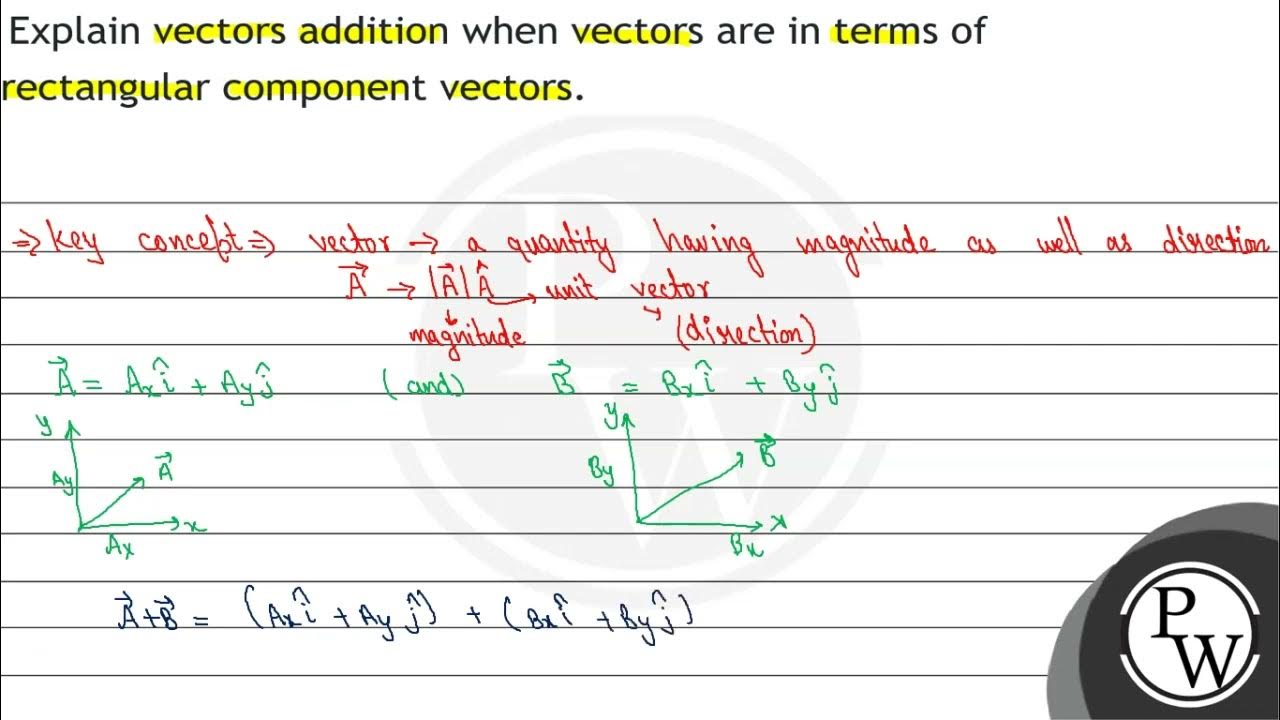 Explain vectors addition when vectors are in terms of
rectangular component vectors.
⇒ Key concept ⇒ vector → a quantity having magnitude as well as direction
A⃗ → |A⃗| Â → unit vector
magnitude → (direction)
A⃗ = Axî + Ayĵ (and) B⃗ = Bxî + Byĵ
y Ay A⃗ x Ax
y By B⃗ x Bx
A⃗+B⃗ = (Axî + Ayĵ) + (Bxî + Byĵ)
PW
PW